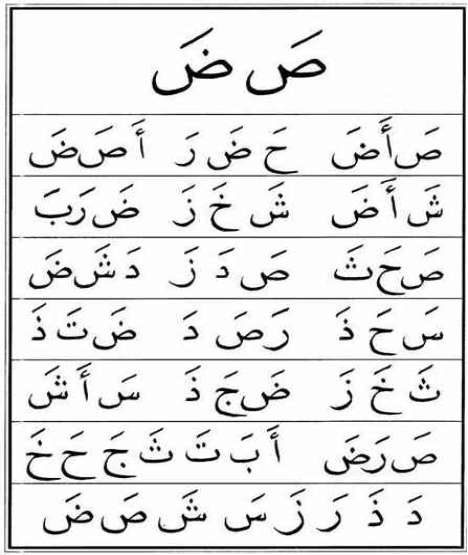 صَ ضَ
صَ أَ ضَ حَ ضَ رَ أَ صَ ضَ
شَ أَ ضَ شَ خَ زَ ضَ رَ بَ
صَ حَ ثَ صَ دَ زَ دَ شَ ضَ
سَ حَ ذَ رَ صَ دَ ضَ تَ ذَ
ثَ خَ زَ ضَ جَ ذَ سَ أَ شَ
صَ رَ ضَ أَ بَ تَ ثَ جَ حَ خَ
دَ ذَ رَ زَ سَ شَ صَ ضَ